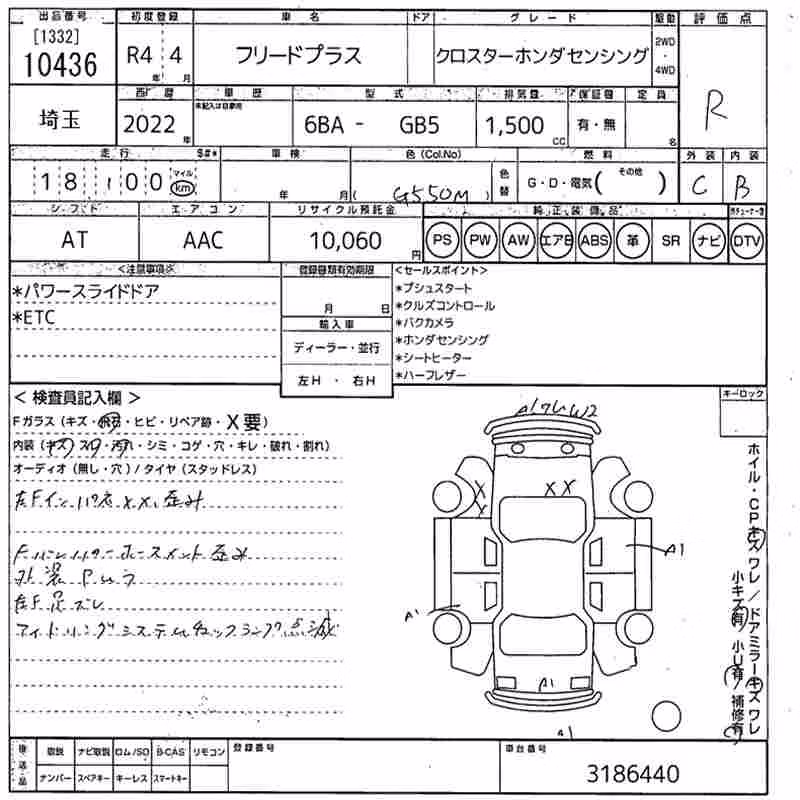 出品番号 初度登録 車名 ドア グレード 駆動 評価点
[1332]
10436 R4 年 4 月 フリードプラス クロスターホンダセンシング 2WD・4WD R
西暦 車歴 型式 排気量 保証書 定員
未記入は自家用
埼玉 2022年 6BA - GB5 1,500cc 有・無 名
走行 S#* 車検 色(Col.No) 燃料 外装 内装
18,100 マイル km 年 月 ( G550M ) 色替 G・D・電気( その他 ) C B
シフト エアコン リサイクル預託金 純正装備品
AT AAC 10,060円 PS PW AW エアB ABS 革 SR ナビ DTV
<注意事項> 登録書類有効期限 <セールスポイント>
*パワースライドドア
*ETC
月 日
輸入車
ディーラー・並行
左H ・ 右H
*プシュスタート
*クルズコントロール
*バクカメラ
*ホンダセンシング
*シートヒーター
*ハーフレザー
<検査員記入欄> キーロック
Fガラス(キズ・飛石・ヒビ・リペア跡・X要)
内装(キズ・スレ・汚れ・シミ・コゲ・穴・キレ・破れ・割れ)
オーディオ(無し・穴)/タイヤ(スタッドレス)
左Fインパネ XX、歪み
歪み
外装
左F足ズレ
アイドリングシステムチェックランプ点滅
A1 ワレ W2
X X X X
A1
A1
A1
A1
ホイル・CPキズワレ/ドアミラーキズワレ
小キズ有/小U有/補修有
後送品 取説 ナビ取説 ロム/SD B-CAS リモコン 登録番号 車台番号
ナンバー スペアキー キーレス スマートキー 3186440